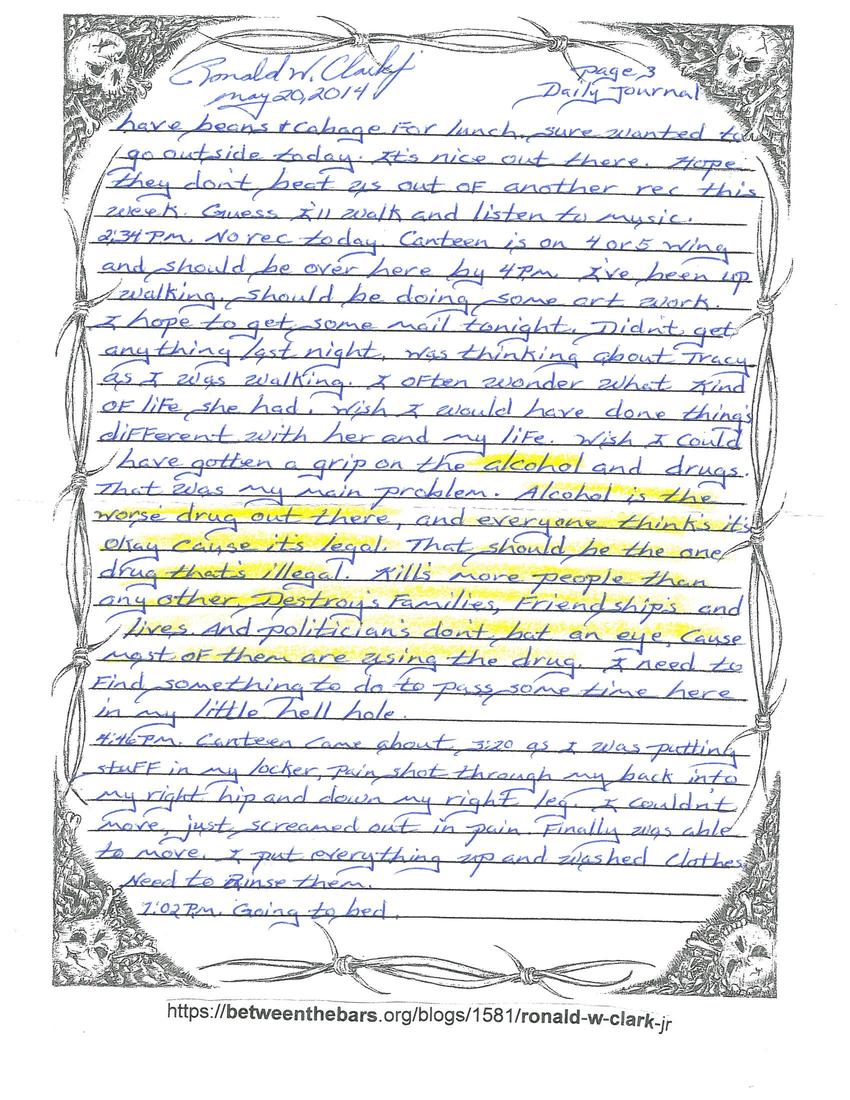 Ronald W. Clark Jr page 3
May 20, 2014 Daily Journal
have beans + cabage For lunch. sure wanted to
go outside today. It's nice out there. Hope
they don't beat us out of another rec this
week. Guess I'll walk and listen to music.
2:34 PM. No rec today. Canteen is on 4 or 5 wing
and should be over here by 4PM. I've been up
walking, should be doing some art work.
I hope to get some mail tonight. Didn't get
anything last night. Was thinking about Tracy
as I was walking. I often wonder what kind
of life she had. Wish I would have done things
different with her and my life. Wish I could
have gotten a grip on the alcohol and drugs.
That was my main problem. Alcohol is the
worse drug out there, and everyone think's it's
okay cause it's legal. That should be the one
drug that's illegal. Kill's more people than
any other. Destroy's Families, Friendship's and
lives. And politician's don't bat an eye, Cause
most of them are using the drug. I need to
Find something to do to pass some time here
in my little hell hole.
4:46 PM. Canteen came about 3:20 as I was putting
stuff in my locker, pain shot through my back into
my right hip and down my right leg. I couldn't
move, just screamed out in pain. Finally was able
to move. I put everything up and washed clothes
Need to Rinse them.
7:02 PM. Going to bed.
https://betweenthebars.org/blogs/1581/ronald-w-clark-jr